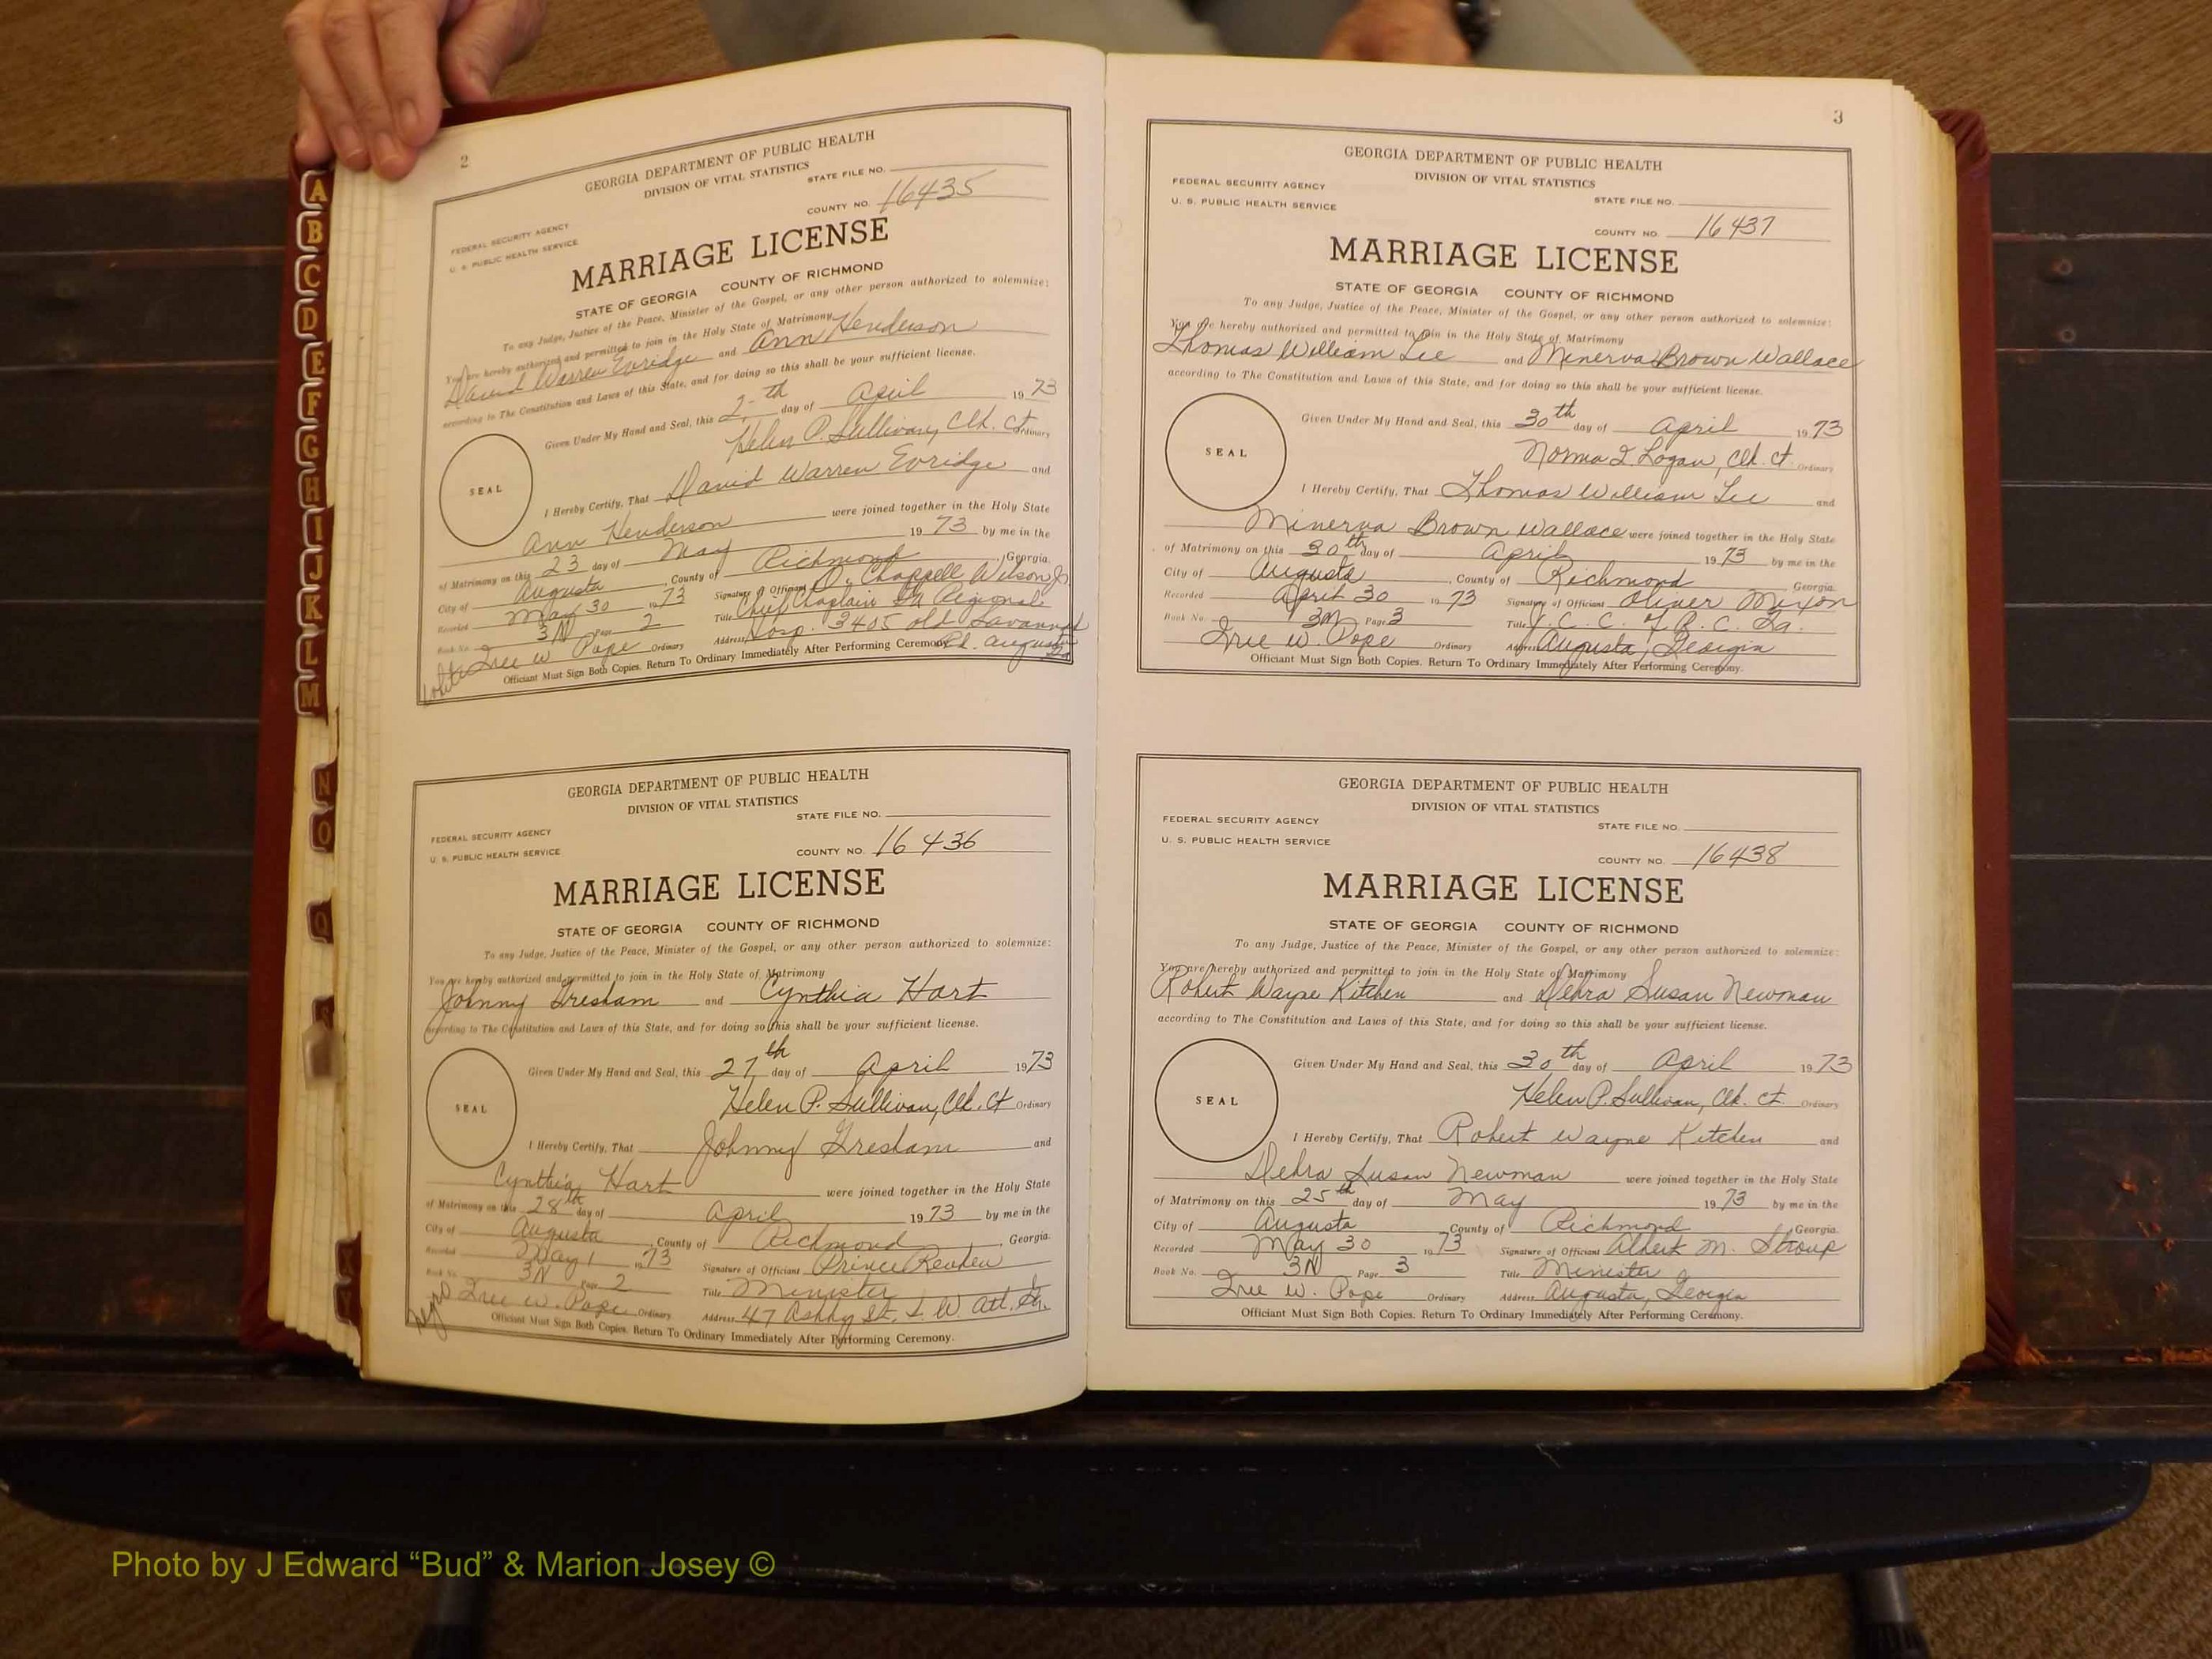 2
GEORGIA DEPARTMENT OF PUBLIC HEALTH
DIVISION OF VITAL STATISTICS
STATE FILE NO.
FEDERAL SECURITY AGENCY
U. S. PUBLIC HEALTH SERVICE
COUNTY NO. 16435
MARRIAGE LICENSE
STATE OF GEORGIA COUNTY OF RICHMOND
To any Judge, Justice of the Peace, Minister of the Gospel, or any other person authorized to solemnize:
You are hereby authorized and permitted to join in the Holy State of Matrimony
David Warren Evridge and Ann Henderson
according to The Constitution and Laws of this State, and for doing so this shall be your sufficient license.
Given Under My Hand and Seal, this th day of April 1973
Helen P. Sullivan, Clk. Ct. Ordinary
SEAL
I Hereby Certify, That David Warren Evridge and
Ann Henderson were joined together in the Holy State
of Matrimony on this 23 day of May 1973 by me in the
City of Augusta, County of Richmond, Georgia.
Recorded May 30 1973 Signature of Officiant O. Chappell Wilson Jr.
Book No. 3N Page 2 Title Chief Chaplain Regional
Iree W. Pope Ordinary Address Hosp. 3405 Old Savannah
Rd. Augusta Ga
white
Officiant Must Sign Both Copies. Return To Ordinary Immediately After Performing Ceremony.
GEORGIA DEPARTMENT OF PUBLIC HEALTH
DIVISION OF VITAL STATISTICS
STATE FILE NO.
FEDERAL SECURITY AGENCY
U. S. PUBLIC HEALTH SERVICE
COUNTY NO. 16436
MARRIAGE LICENSE
STATE OF GEORGIA COUNTY OF RICHMOND
To any Judge, Justice of the Peace, Minister of the Gospel, or any other person authorized to solemnize:
You are hereby authorized and permitted to join in the Holy State of Matrimony
Johnny Gresham and Cynthia Hart
according to The Constitution and Laws of this State, and for doing so this shall be your sufficient license.
Given Under My Hand and Seal, this 27th day of April 1973
Helen P. Sullivan, Clk. Ct Ordinary
SEAL
I Hereby Certify, That Johnny Gresham and
Cynthia Hart were joined together in the Holy State
of Matrimony on this 28th day of April 1973 by me in the
City of Augusta, County of Richmond, Georgia.
Recorded May 1 1973 Signature of Officiant Prince
Book No. 3N Page 2 Title Minister
Iree W. Pope Ordinary Address 47 Ashby St. S. W. Atl. Ga.
negro
Officiant Must Sign Both Copies. Return To Ordinary Immediately After Performing Ceremony.
3
GEORGIA DEPARTMENT OF PUBLIC HEALTH
DIVISION OF VITAL STATISTICS
FEDERAL SECURITY AGENCY
U. S. PUBLIC HEALTH SERVICE
STATE FILE NO.
COUNTY NO. 16437
MARRIAGE LICENSE
STATE OF GEORGIA COUNTY OF RICHMOND
To any Judge, Justice of the Peace, Minister of the Gospel, or any other person authorized to solemnize:
You are hereby authorized and permitted to join in the Holy State of Matrimony
Thomas William Lee and Minerva Brown Wallace
according to The Constitution and Laws of this State, and for doing so this shall be your sufficient license.
Given Under My Hand and Seal, this 30th day of April 1973
Norma I. Logan, Clk. Ct. Ordinary
SEAL
I Hereby Certify, That Thomas William Lee and
Minerva Brown Wallace were joined together in the Holy State
of Matrimony on this 30th day of April 1973 by me in the
City of Augusta, County of Richmond Georgia.
Recorded April 30 1973 Signature of Officiant Oliver Mixon
Book No. Page 3 Title J. C. C. of R. C. Ga.
Iree W. Pope Ordinary Address Augusta, Georgia
Officiant Must Sign Both Copies. Return To Ordinary Immediately After Performing Ceremony.
GEORGIA DEPARTMENT OF PUBLIC HEALTH
DIVISION OF VITAL STATISTICS
FEDERAL SECURITY AGENCY
STATE FILE NO.
U. S. PUBLIC HEALTH SERVICE
COUNTY NO. 16438
MARRIAGE LICENSE
STATE OF GEORGIA COUNTY OF RICHMOND
To any Judge, Justice of the Peace, Minister of the Gospel, or any other person authorized to solemnize:
You are hereby authorized and permitted to join in the Holy State of Matrimony
Robert Wayne Kitchen and Debra Susan Newman
according to The Constitution and Laws of this State, and for doing so this shall be your sufficient license.
Given Under My Hand and Seal, this 30th day of April 1973
Helen P. Sullivan, Clk. Ct. Ordinary
SEAL
I Hereby Certify, That Robert Wayne Kitchen and
Debra Susan Newman were joined together in the Holy State
of Matrimony on this 25th day of May 1973 by me in the
City of Augusta, County of Richmond, Georgia.
Recorded May 30 1973 Signature of Officiant Albert M. Stroup
Book No. 3N Page 3 Title Minister
Iree W. Pope Ordinary Address Augusta, Georgia
Officiant Must Sign Both Copies. Return To Ordinary Immediately After Performing Ceremony.
A
B
C
D
E
F
G
H
I
J
K
L
M
N
O
Q
S
Photo by J Edward “Bud” & Marion Josey ©